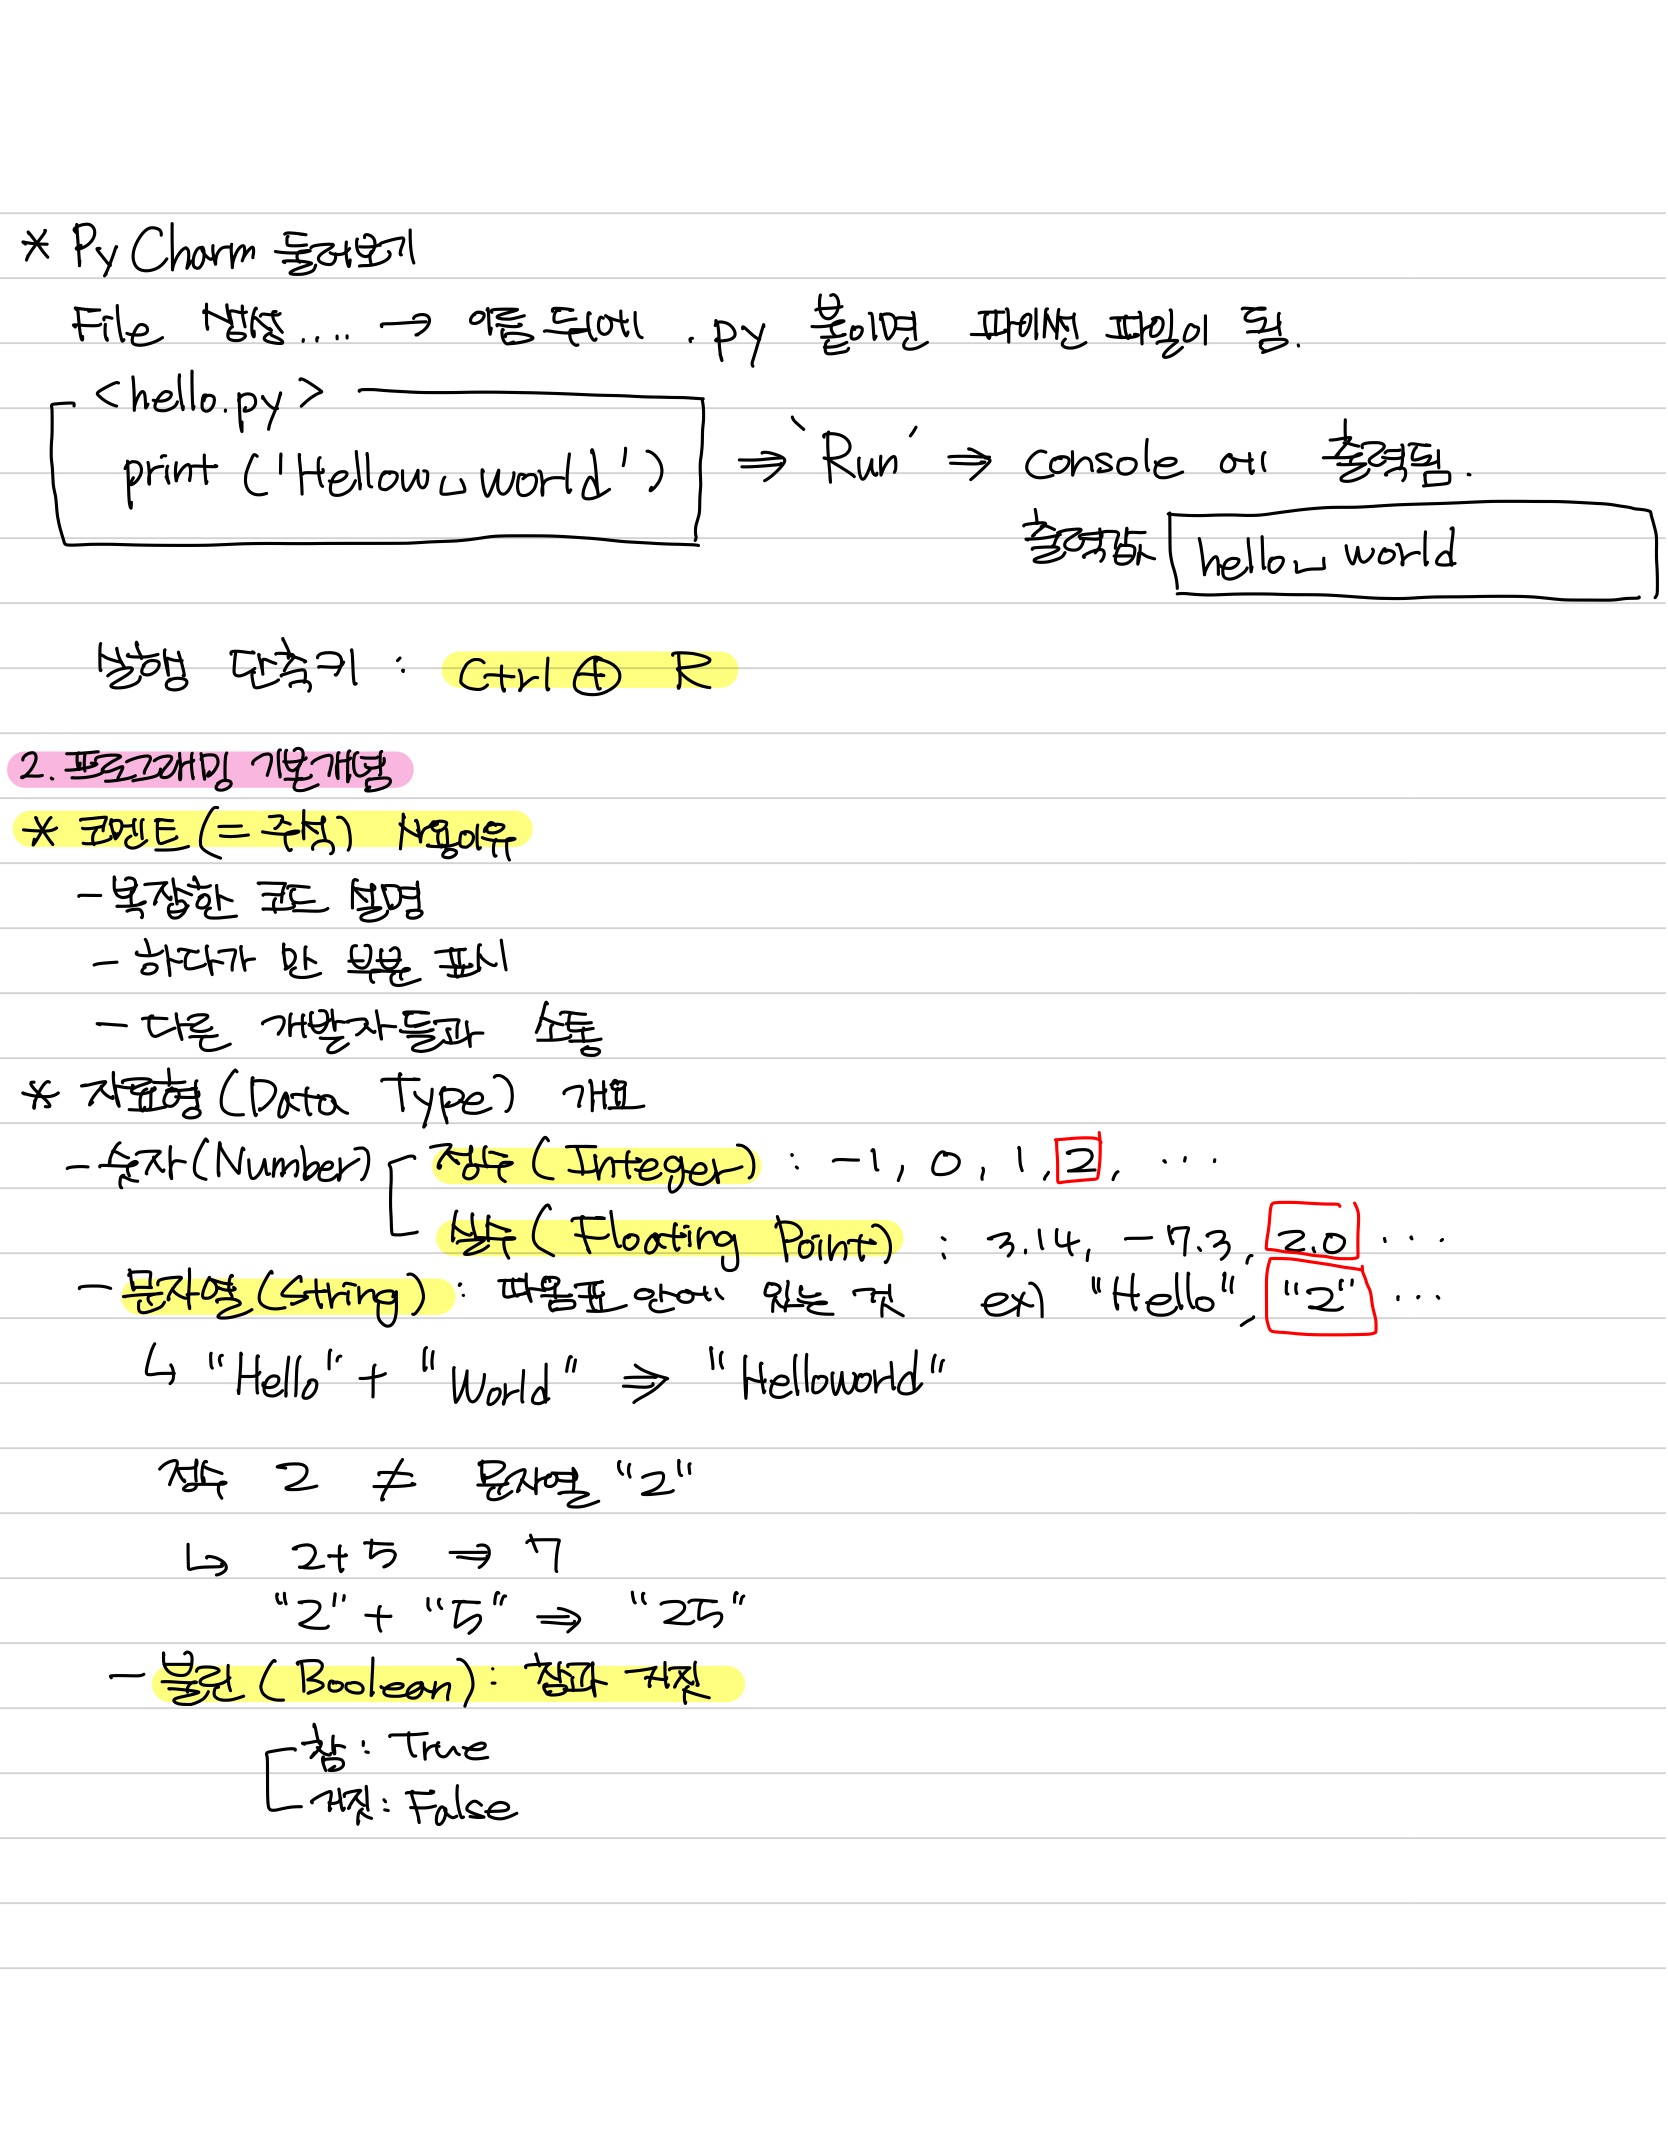 * PyCharm 둘러보기
File 생성.... → 이름 뒤에 .py 붙이면 파이썬 파일이 됨.
<hello.py>
print ('Hellow␣world') ⇒ 'Run' ⇒ console 에 출력됨.
출력값 hello␣world
실행 단축키 : Ctrl ⊕ R
2. 프로그래밍 기본개념
* 코멘트 (= 주석) 사용이유
- 복잡한 코드 설명
- 하다가 만 부분 표시
- 다른 개발자들과 소통
* 자료형 (Data Type) 개요
- 숫자 (Number) 정수 (Integer) : -1, 0, 1, 2, ...
실수 (Floating Point) : 3.14, -7.3, 2.0 ...
- 문자열 (String) : 따옴표 안에 있는 것 ex) "Hello", "2" ...
↳ "Hello" + "World" ⇒ "Helloworld"
정수 2 ≠ 문자열 "2"
↳ 2+5 ⇒ 7
"2" + "5" ⇒ "25"
- 불린 (Boolean) : 참과 거짓
참 : True
거짓 : False